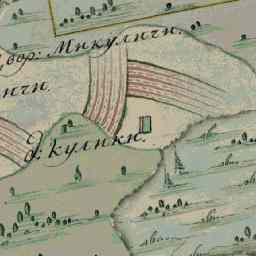 двор: Микуличи.
ичи
д: кулики.